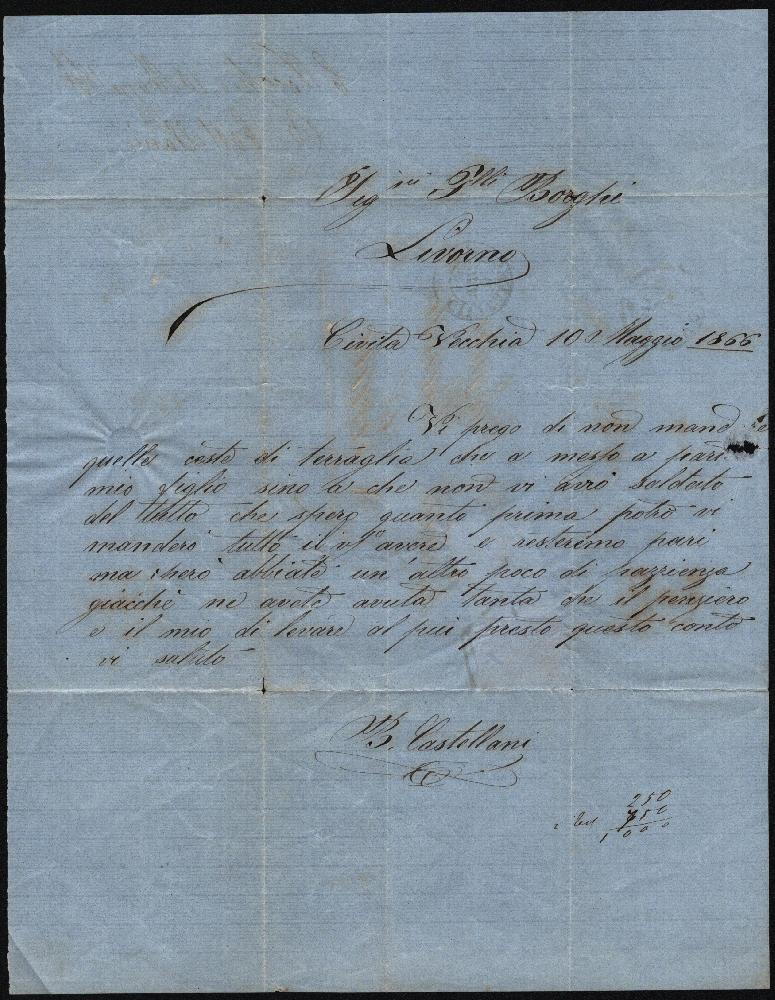 Sig.ri F.lli Borghi
Livorno
Civita Vecchia 10 Maggio 1866
Vi prego di non mand re
quelle ceste di terraglia che a messo a pari
mio figlio sino a che non vi avrò saldato
del tutto che spero quanto prima potrò vi
manderò tutto il v.o avere e resteremo pari
ma però abbiate un altro poco di pazzienza
giacchè ne avete avuta tanta che il pensiero
e il mio di levare al più presto questo conto
vi saluto
B. Castellani
250
750
1000